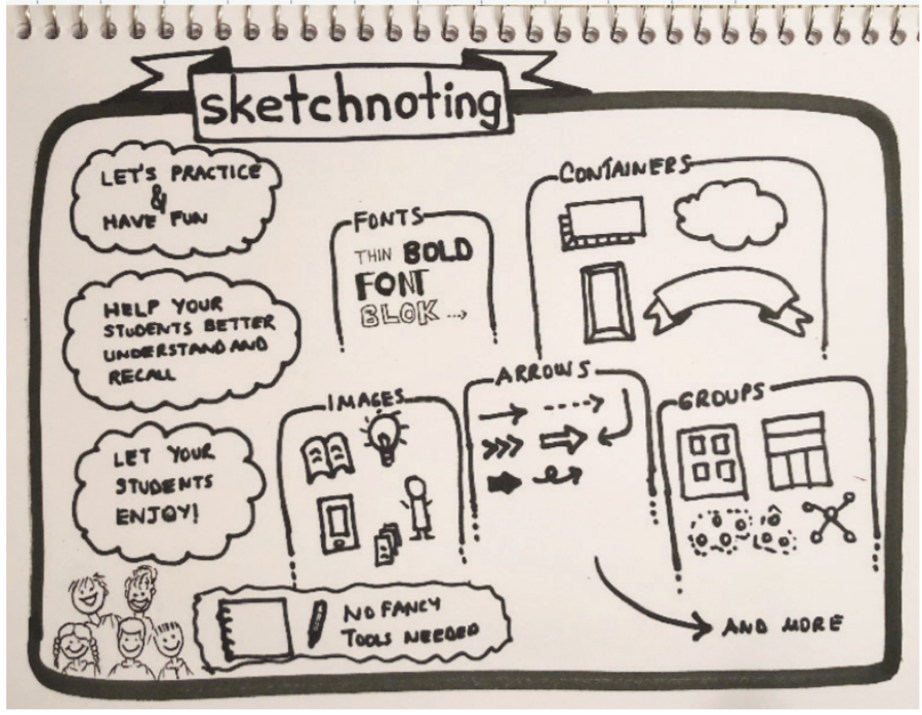 sketchnoting
LET'S PRACTICE
&
HAVE FUN
HELP YOUR
STUDENTS BETTER
UNDERSTAND AND
RECALL
LET YOUR
STUDENTS
ENJOY!
FONTS
THIN BOLD
FONT
BLOK
CONTAINERS
IMAGES
ARROWS
GROUPS
NO FANCY
TOOLS NEEDED
AND MORE